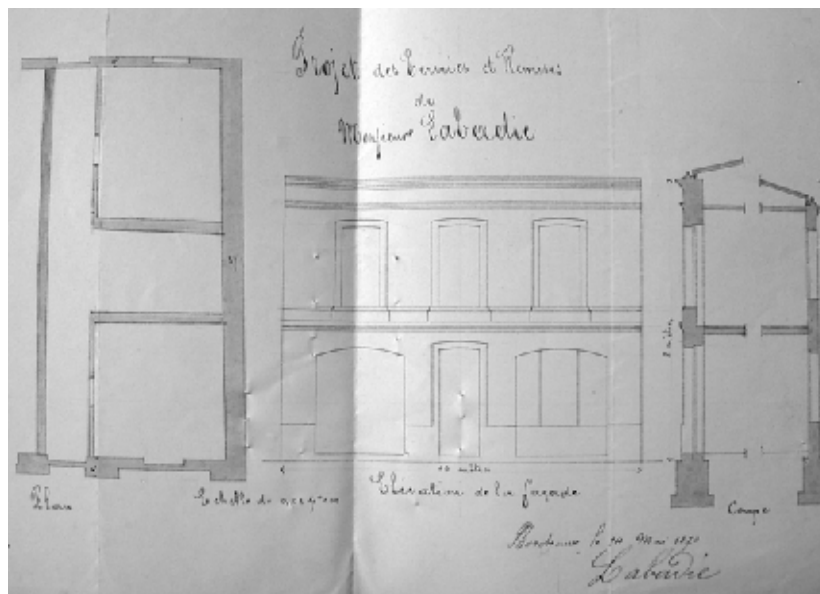 Projet des Ecuries et Remises
de
Monsieur Labadie
Plan
Echelle de
10 mètres
Elévation de la façade
Coupe
Bordeaux le Mai
Labadie